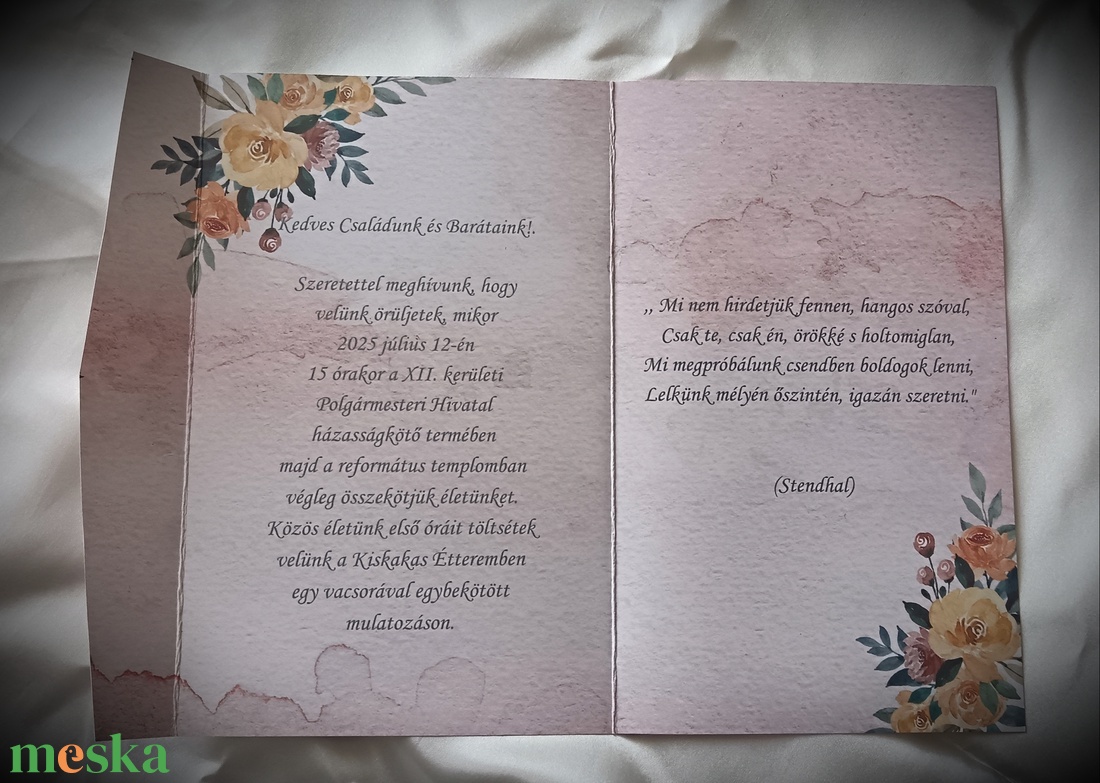 Kedves Családunk és Barátaink!.
Szeretettel meghívunk, hogy
velünk örüljetek, mikor
2025 július 12-én
15 órakor a XII. kerületi
Polgármesteri Hivatal
házasságkötő termében
majd a református templomban
végleg összekötjük életünket.
Közös életünk első óráit töltsétek
velünk a Kiskakas Étteremben
egy vacsorával egybekötött
mulatozáson.
,, Mi nem hirdetjük fennen, hangos szóval,
Csak te, csak én, örökké s holtomiglan,
Mi megpróbálunk csendben boldogok lenni,
Lelkünk mélyén őszintén, igazán szeretni."
(Stendhal)
meska